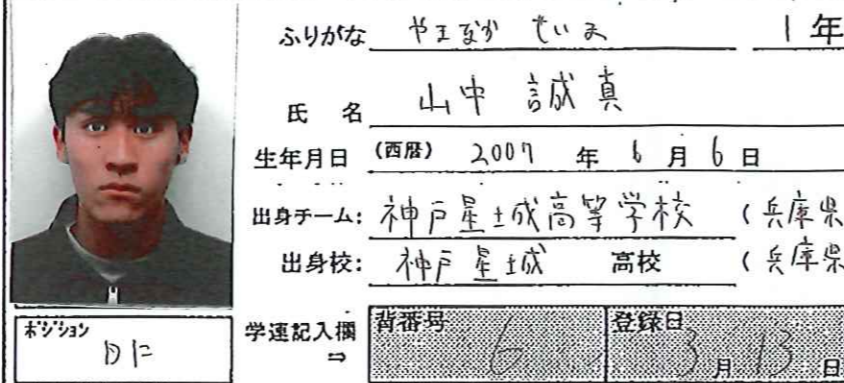 ふりがな やまなか せいま 1年
氏 名 山中 誠真
生年月日 (西暦) 2007 年 6 月 6 日
出身チーム: 神戸星城高等学校 (兵庫県
出身校: 神戸星城 高校 (兵庫県
ポジション DF
学連記入欄 ⇒ 背番号 6 登録日 3 月 13 日